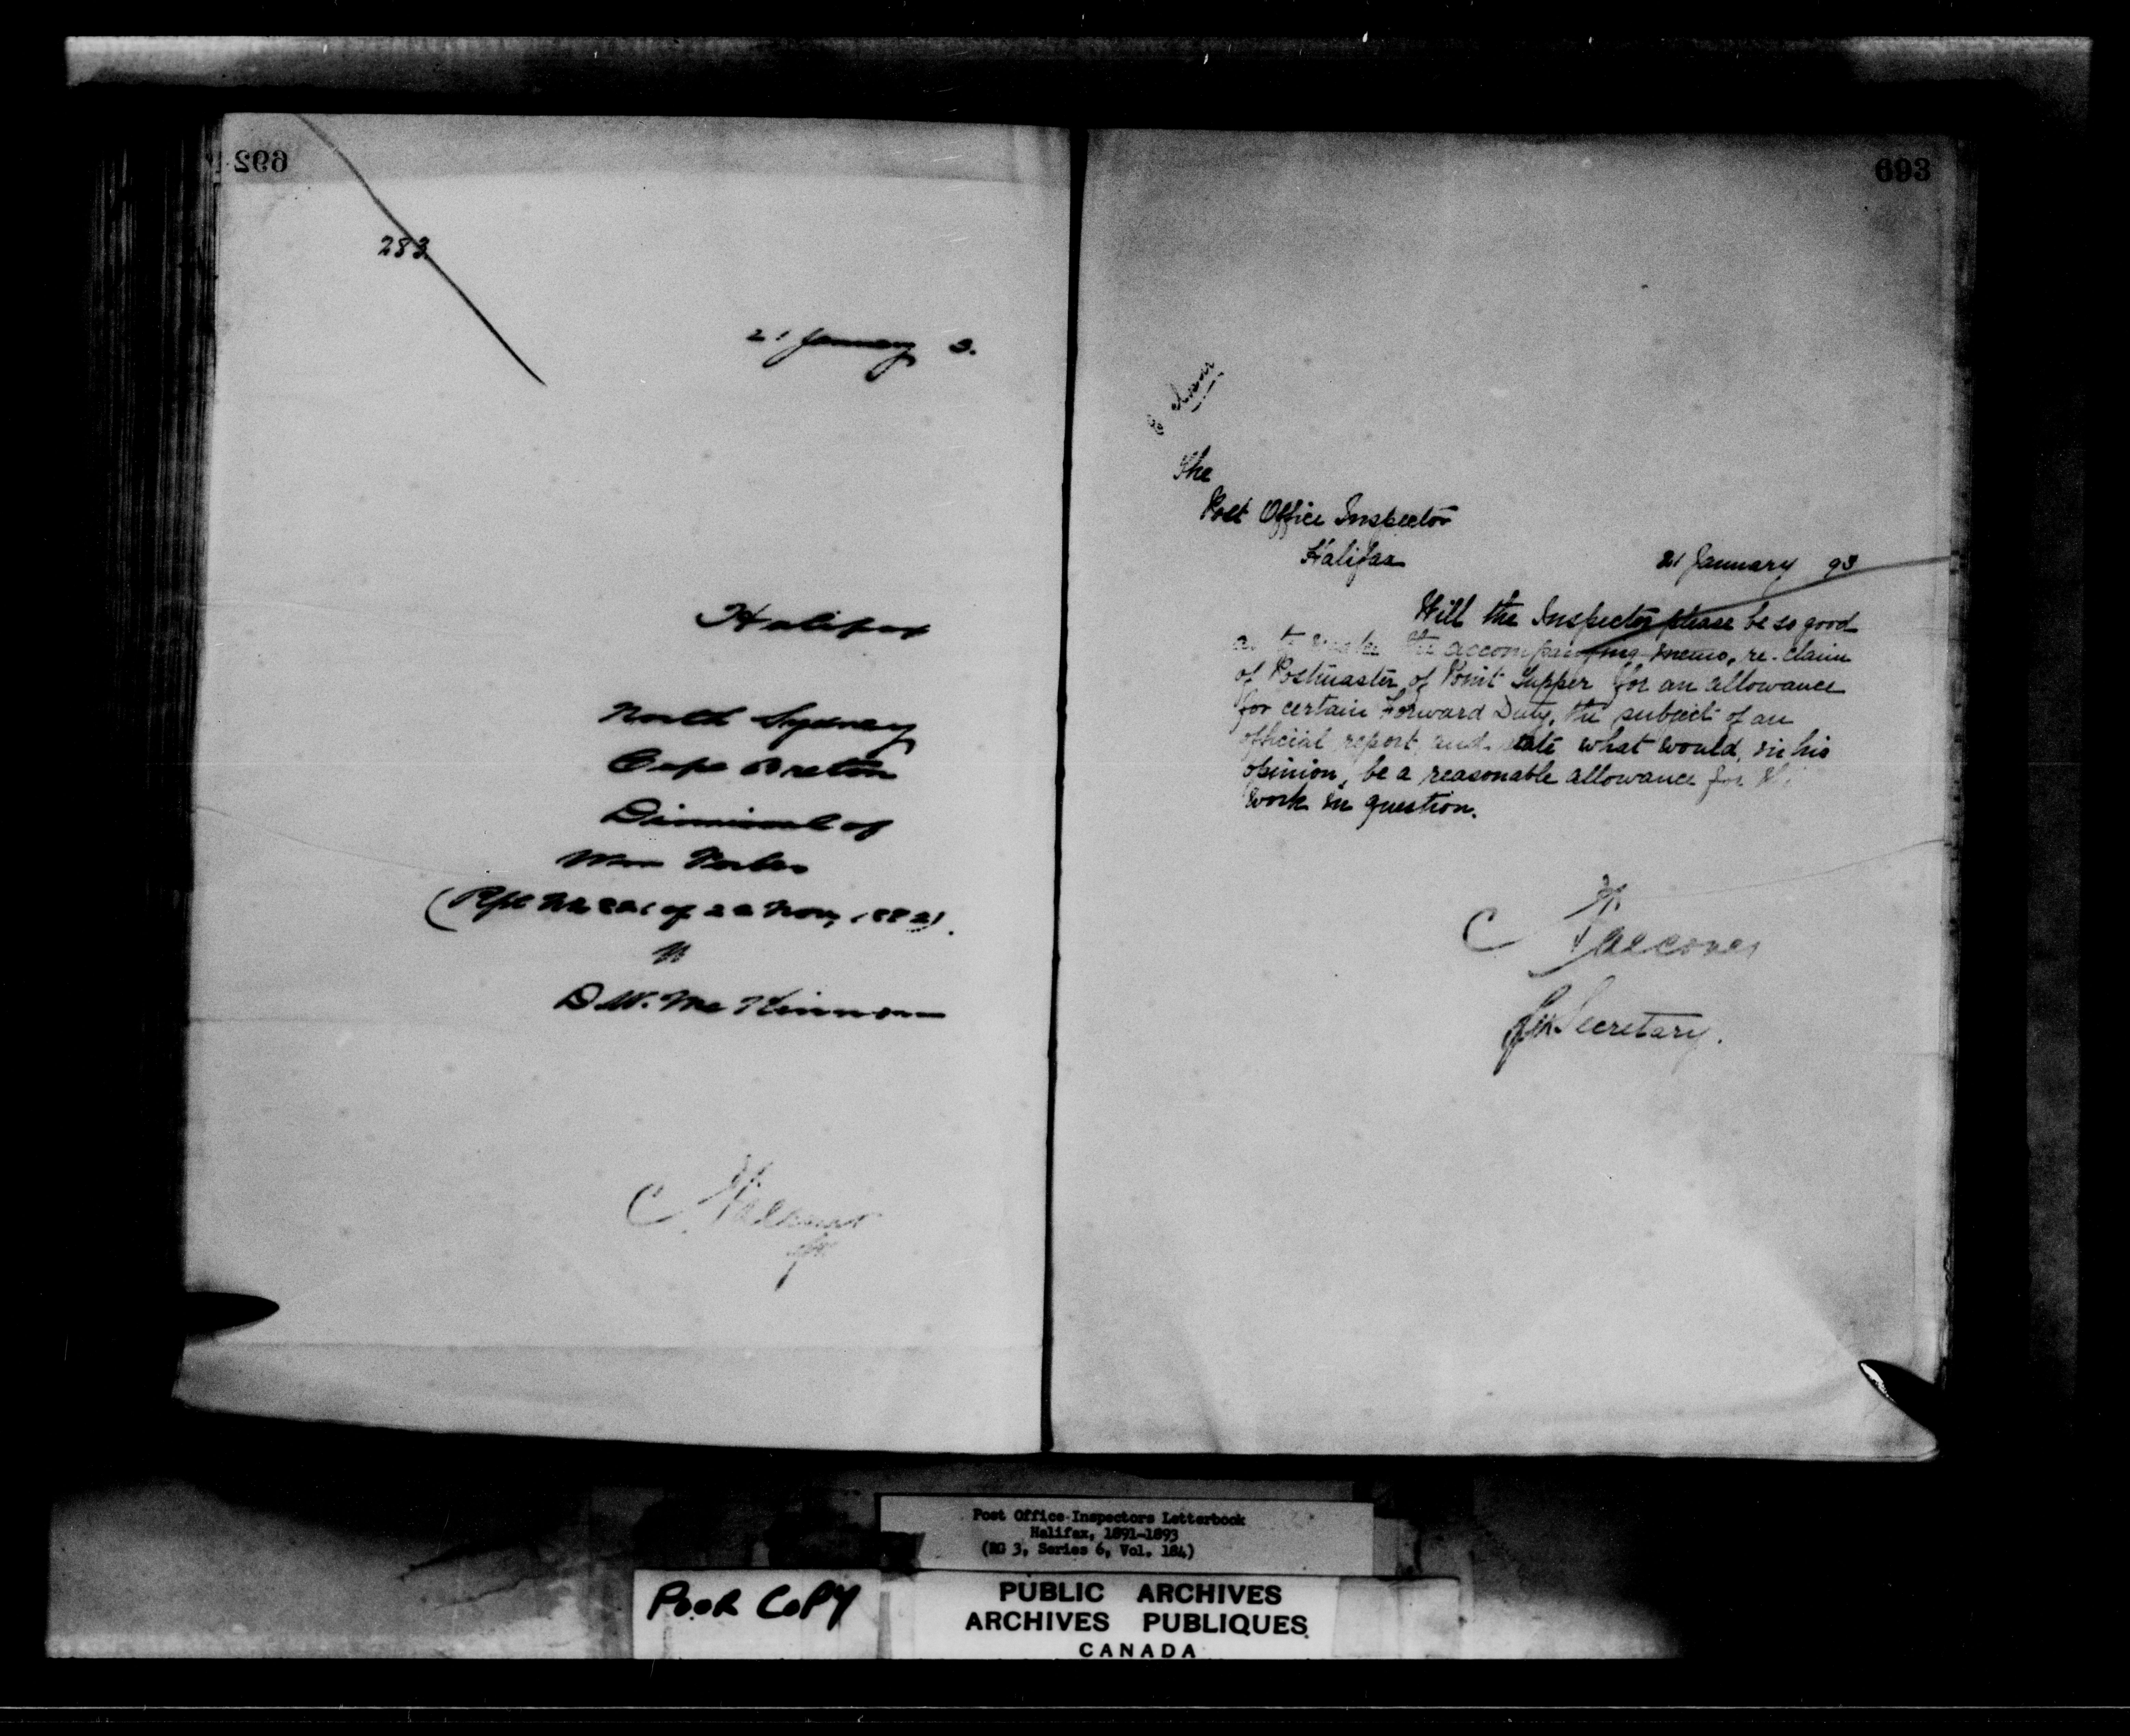 692
283
21 January 3.
Halifax
North Sydney
Cape Breton
Dismissal of
(Rept No of 22 Nov, 1882).
D. W. McKinnon
C
693
The
Post Office Inspector
Halifax
21 January 93
Will the Inspector please be so good
as to the accompanying memo, re-claim
of Postmaster of Point Tupper for an allowance
for certain Forward Duty, the subject of an
official report, and state what would, in his
opinion, be a reasonable allowance for
work in question.
C Falconer
for Secretary.
Post Office Inspectors Letterbook
Halifax, 1891-1893
(RG 3, Series 6, Vol. 184)
POOR COPY
PUBLIC ARCHIVES
ARCHIVES PUBLIQUES
CANADA